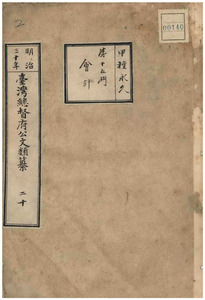 2
00140
甲種永久
第十五門
會計
明治
三十年
臺灣總督府公文類纂
二十